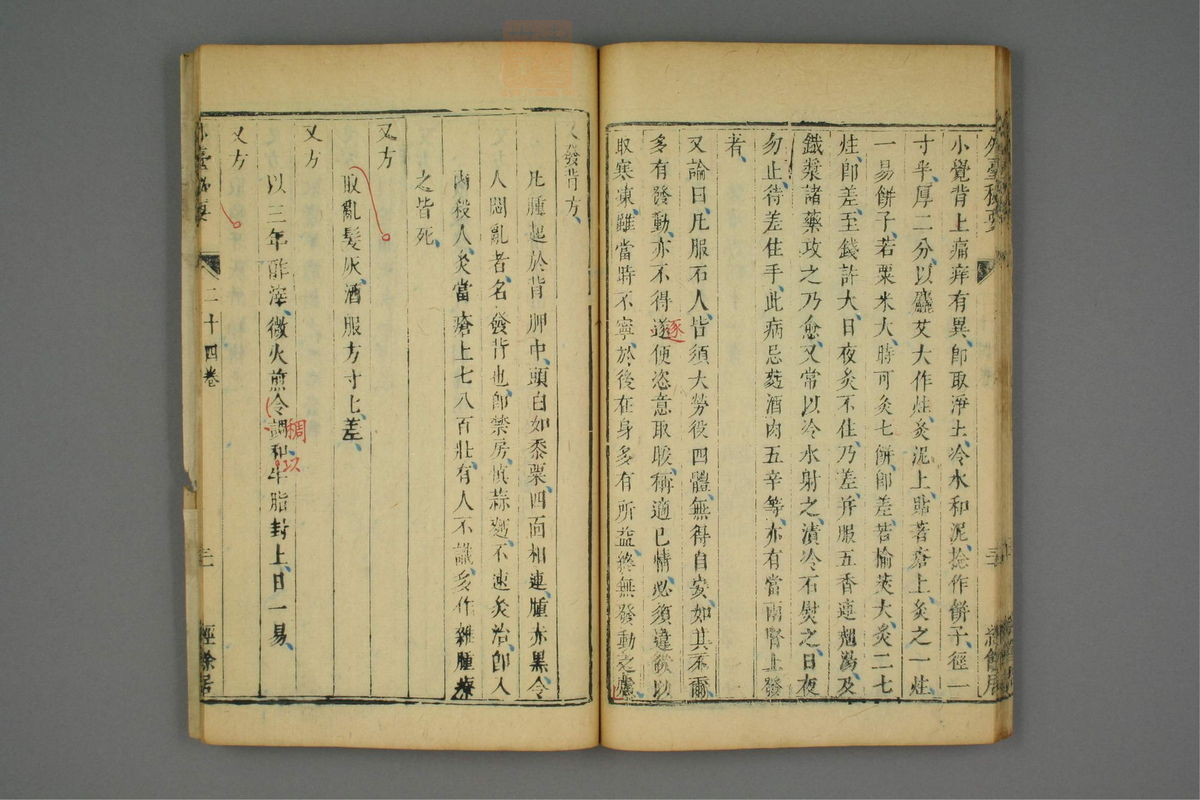 外臺秘要
小覺背上痛痒有異即取淨土冷水和泥捻作餅子徑一
寸半厚二分以麤艾大作炷灸泥上貼著瘡上灸之一炷
一易餅子若粟米大時可灸七餅即差若榆莢大灸二七
炷即差至錢許大日夜灸不住乃差并服五香連翹湯及
鐵漿諸藥攻之乃愈又常以冷水射之漬冷石熨之日夜
勿止待差住手此病忌麪酒肉五辛等亦有當兩腎上發
者
又論曰凡服石人皆須大勞役四體無得自安如其不爾
多有發動亦不得遂便恣意取暖稱適已情必須違欲以
逐
取寒凍雖當時不寧於後在身多有所益終無發動之慮
又發背方
凡腫起於背胛中頭白如黍粟四面相連腫赤黑令
人悶亂者名發背也即禁房慎蒜麪不速灸治即入
內殺人灸當瘡上七八百壯有人不識多作雜腫療
之皆死
又方
取亂髮灰酒服方寸匕差
又方
以三年酢滓微火煎令調和牛脂封上日一易
稠
以
又方
外臺秘要
二十四卷
三
經餘居